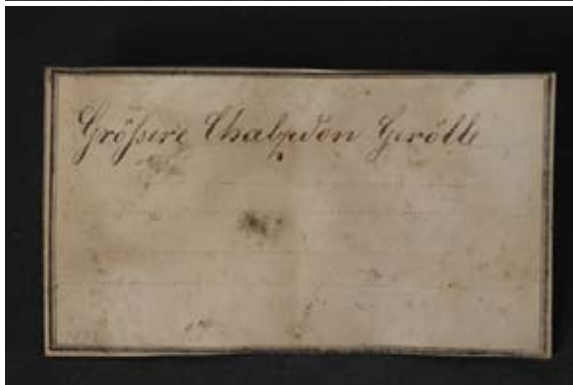 Größere Chalzedon Gerölle